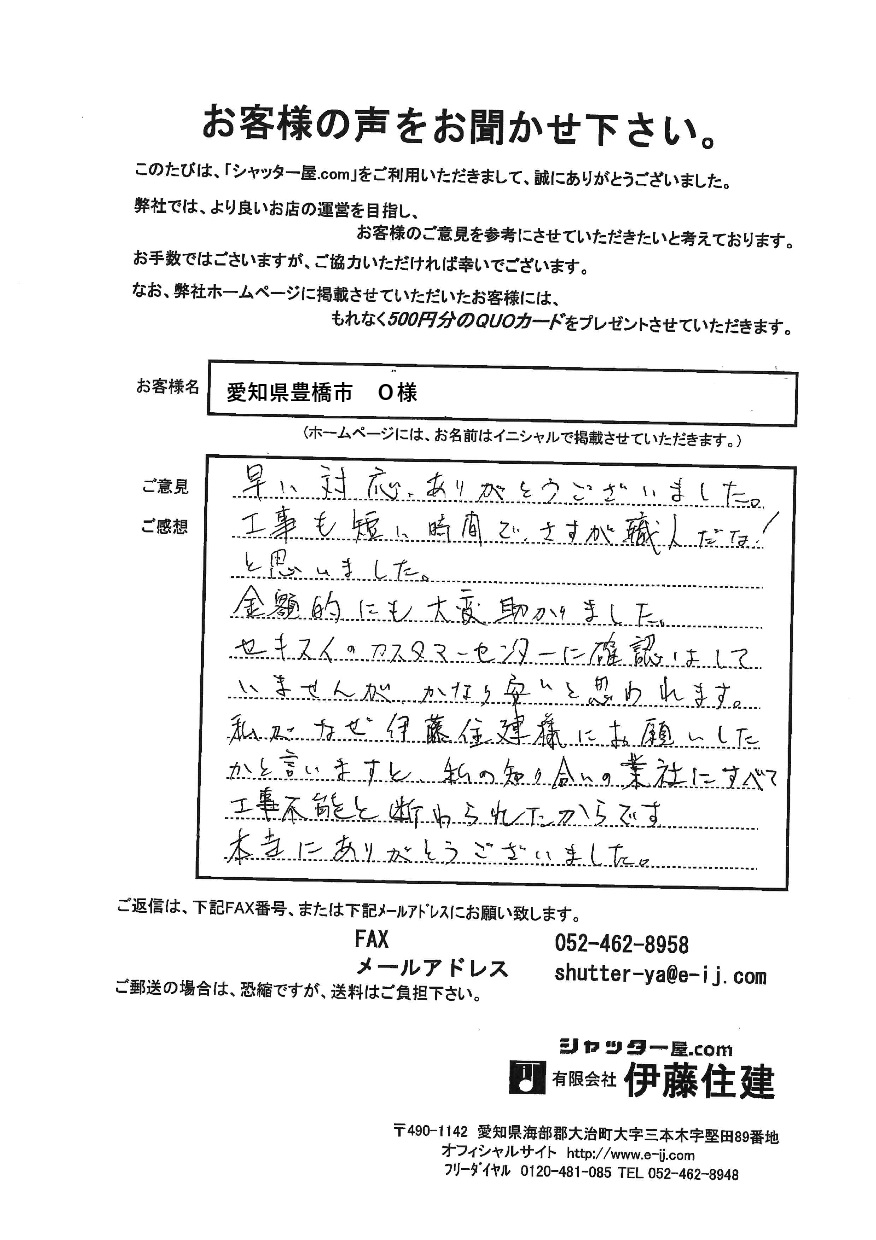 お客様の声をお聞かせ下さい。
このたびは、「シャッター屋.com」をご利用いただきまして、誠にありがとうございました。
弊社では、より良いお店の運営を目指し、
お客様のご意見を参考にさせていただきたいと考えております。
お手数ではごさいますが、ご協力いただければ幸いでございます。
なお、弊社ホームページに掲載させていただいたお客様には、
もれなく500円分のQUOカードをプレゼントさせていただきます。
お客様名 愛知県豊橋市 O様
(ホームページには、お名前はイニシャルで掲載させていただきます。)
ご意見
ご感想
早い対応、ありがとうございました。
工事も短い時間で、さすが職人だな!
と思いました。
金額的にも大変助かりました。
セキスイのカスタマーセンターに確認はして
いませんが、かなり安いと思われます。
私がなぜ伊藤住建様にお願いした
かと言いますと、私の知り合いの業社にすべて
工事不能と断わられたからです
本当にありがとうございました。
ご返信は、下記FAX番号、または下記メールアドレスにお願い致します。
FAX 052-462-8958
メールアドレス shutter-ya@e-ij.com
ご郵送の場合は、恐縮ですが、送料はご負担下さい。
シャッター屋.com
有限会社 伊藤住建
〒490-1142 愛知県海部郡大治町大字三本木字堅田89番地
オフィシャルサイト http://www.e-ij.com
フリーダイヤル 0120-481-085 TEL 052-462-8948